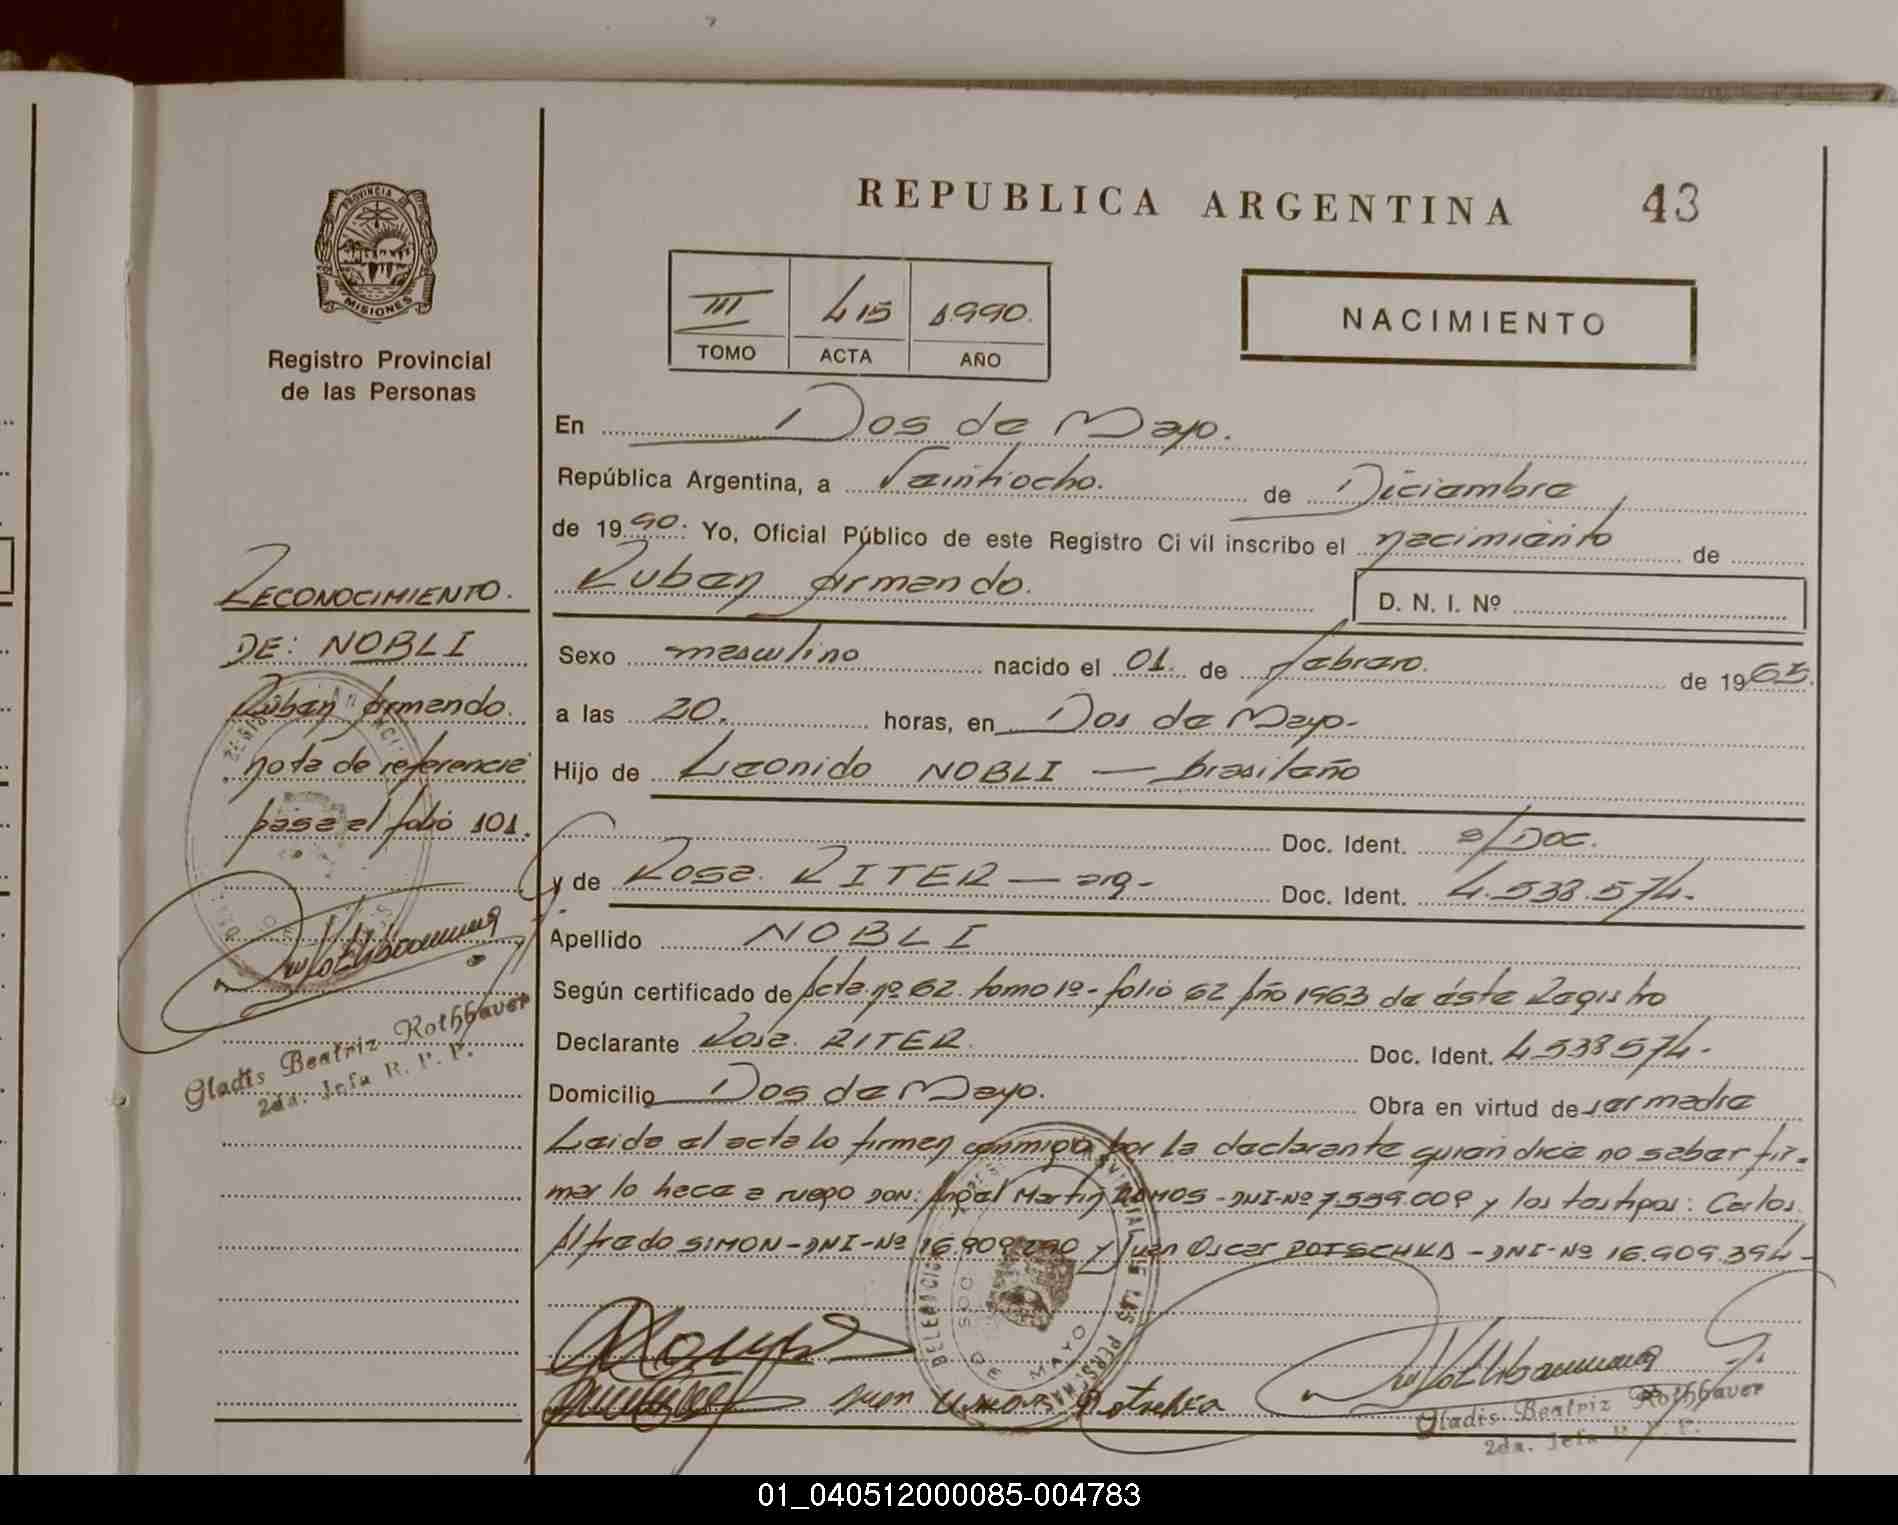 REPUBLICA ARGENTINA 43
PROVINCIA DE
MISIONES
Registro Provincial
de las Personas
III 415 1.990.
TOMO ACTA AÑO
NACIMIENTO
En Dos de Mayo.
República Argentina, a Veintiocho. de Diciembre
de 1990. Yo, Oficial Público de este Registro Ci vil inscribo el nacimiento de
Ruben Armando. D. N. I. Nº
Sexo masculino nacido el 01. de febrero. de 1963.
a las 20. horas, en Dos de Mayo-
Hijo de Leonido NOBLI — brasileño
Doc. Ident. s/DOC.
y de Rosa. RITER — arg- Doc. Ident. 4.538.574-
Apellido NOBLI
Según certificado de Acta nº 62. tomo 1º- folio 62 Año 1963 de éste Registro
Declarante Rosa. RITER. Doc. Ident. 4.538574-
Domicilio Dos de Mayo. Obra en virtud de ser madre
Leida el acta lo firmen conmigo por la declarante quien dice no saber fir-
mar lo hace a ruego DON: Angel Martin RAMOS - DNI-Nº 7.559.009 y los testigos: Carlos
Alfredo SIMON - DNI-Nº 16.909.290 y Juan Oscar ROTSCHKA - DNI-Nº 16.909.394-
RECONOCIMIENTO.
DE: NOBLI
Ruben Armando.
nota de referencia
pasa al folio 101.
Gladis Beatriz Rothbauer
2da. Jefa R. P. P.
DELEGACION
PROVINCIAL DE LAS PERSONAS
DOS DE MAYO
Juan Rotschka
Gladis Beatriz Rothbauer
2da. Jefa R. P. P.
01_040512000085-004783